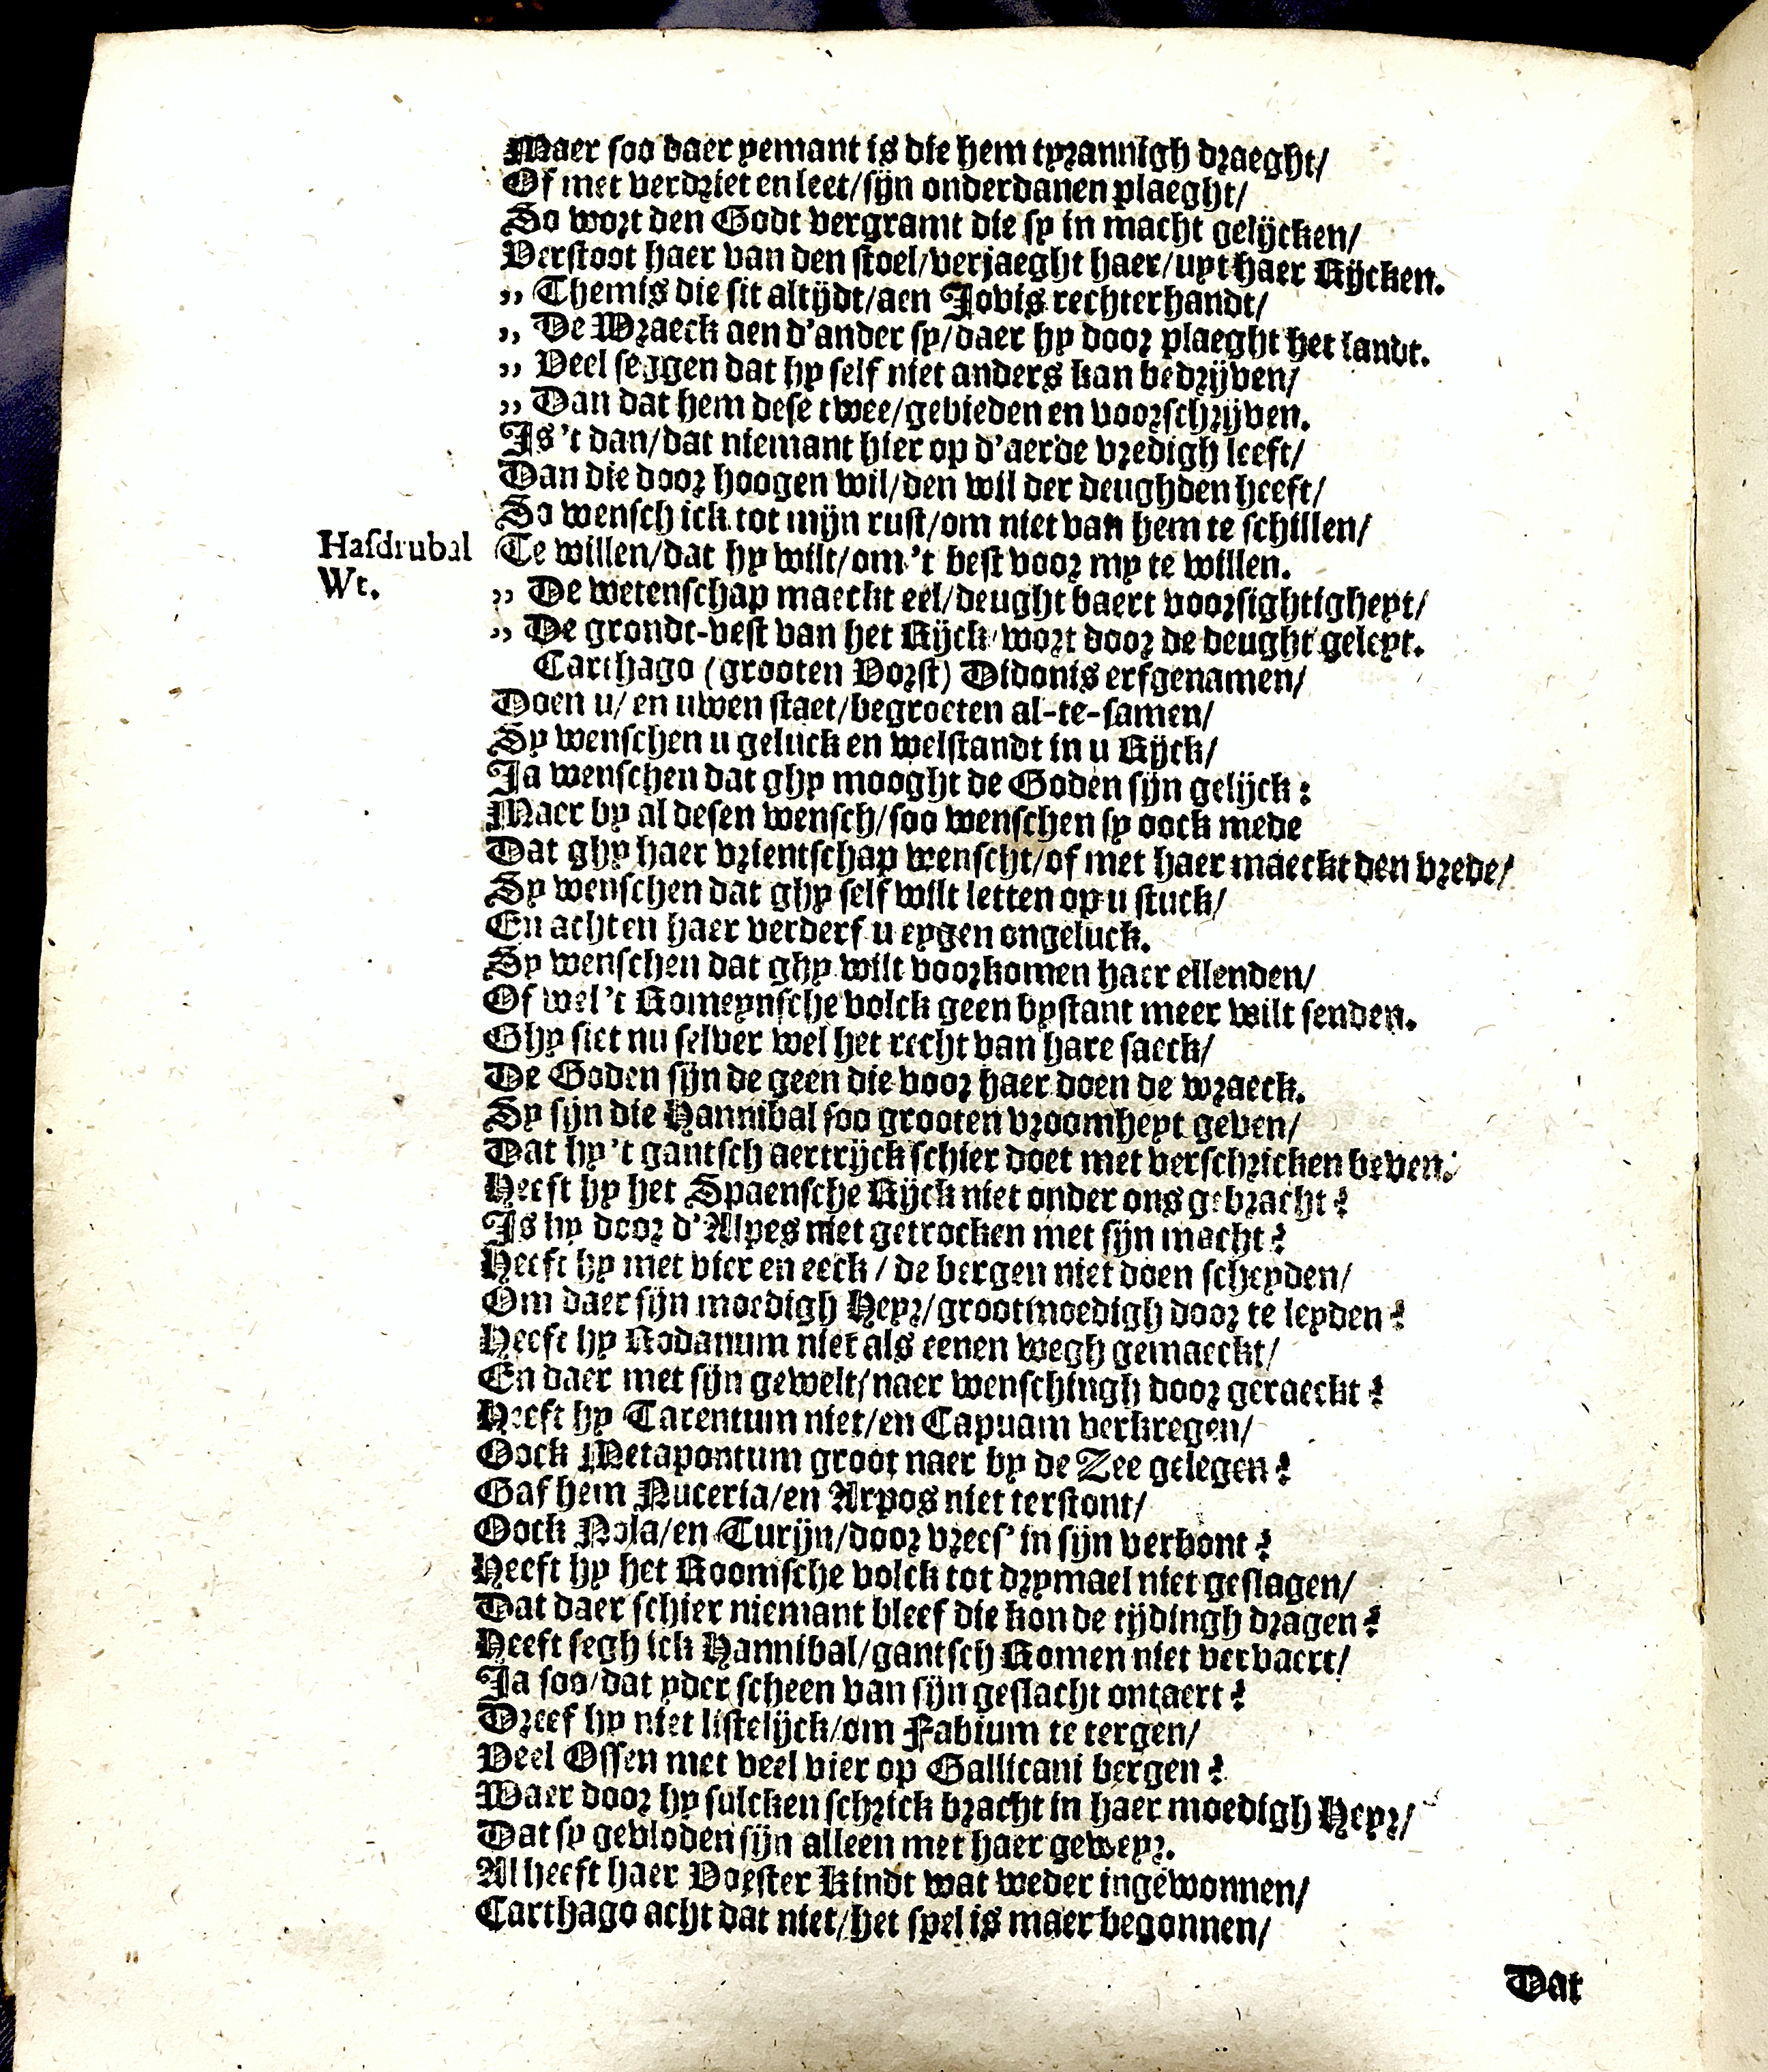 Maer soo daer yemant is die hem tyrannigh draeght/
Of met verdriet en leet/sijn onderdanen plaeght/
So wort den Godt vergramt die sy in macht gelijcken/
Verstoot haer van den stoel/verjaeght haer/uyt haer Rijcken.
,, Themis die sit altijdt/aen Jovis rechterhandt/
,, De Wraeck aen d'ander sy/daer hy door plaeght het landt.
,, Veel seggen dat hy self niet anders kan bedrijven/
,, Dan dat hem dese twee/gebieden en voorschrijven.
Is 't dan/dat niemant hier op d'aerde vredigh leeft/
Dan die door hoogen wil/den wil der deughden heeft/
So wensch ick tot mijn rust/om niet van hem te schillen/
Hasdrubal Te willen/dat hy wilt/om 't best voor my te willen.
Wt. ,, De wetenschap maeckt eel/deught baert voorsightigheyt/
,, De grondt-vest van het Rijck/wort door de deught geleyt.
Carthago (grooten Vorst) Didonis erfgenamen/
Doen u/ en uwen staet/begroeten al-te-samen/
Sy wenschen u geluck en welstandt in u Rijck/
Ja wenschen dat ghy mooght de Goden sijn gelijck:
Maer by al desen wensch/soo wenschen sy oock mede
Dat ghy haer vrientschap wenscht/of met haer maeckt den vrede/
Sy wenschen dat ghy self wilt letten op u stuck/
En achten haer verderf u eygen ongeluck.
Sy wenschen dat ghy wilt voorkomen haer ellenden/
Of wel 't Romeynsche volck geen bystant meer wilt senden.
Ghy siet nu selver wel het recht van hare saeck/
De Goden sijn de geen die voor haer doen de wraeck.
Sy sijn die Hannibal soo grooten vroomheyt geven/
Dat hy 't gantsch aertrijck schier doet met verschricken beven.
Heeft hy het Spaensche Rijck niet onder ons gebracht?
Is hy door d'Alpes niet getrocken met sijn macht?
Heeft hy met vier en eeck / de bergen niet doen scheyden/
Om daer sijn moedigh Heyr/grootmoedigh door te leyden?
Heeft hy Rodanum niet als eenen wegh gemaeckt/
En daer met sijn gewelt/naer wenschingh door geraeckt?
Heeft hy Tarentum niet/en Capuam verkregen/
Oock Metapontum groot naer by de Zee gelegen?
Gaf hem Nuceria/en Arpos niet terstont/
Oock Nola/en Turijn/door vrees' in sijn verbont?
Heeft hy het Roomsche volck tot drymael niet geslagen/
Dat daer schier niemant bleef die kon de tijdingh dragen?
Heeft segh ick Hannibal/gantsch Romen niet vervaert/
Ja soo/dat yder scheen van sijn geslacht ontaert?
Dreef hy niet listelijck/om Fabium te tergen/
Veel Ossen met veel vier op Gallicani bergen?
Waer door hy sulcken schrick bracht in haer moedigh Heyr/
Dat sy gevloden sijn alleen met haer geweyr.
Al heeft haer Voester Kindt wat weder ingewonnen/
Carthago acht dat niet/het spel is maer begonnen/
Dat